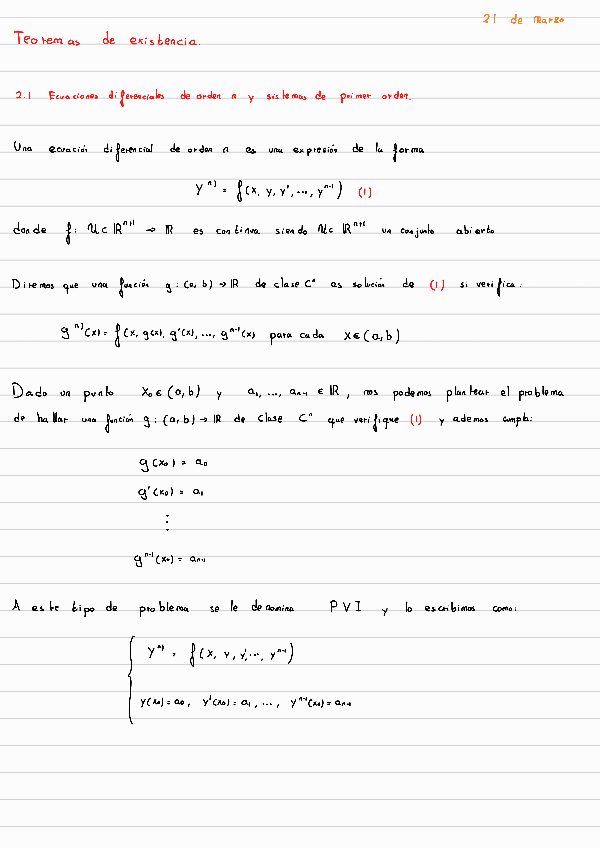 21 de Marzo
Teoremas de existencia.
2.1 Ecuaciones diferenciales de orden n y sistemas de primer orden.
Una ecuación diferencial de orden n es una expresión de la forma
y^{n)} = f(x, y, y', ..., y^{n-1}) (1)
donde f: U ⊂ ℝ^{n+1} → ℝ es continua siendo U ⊂ ℝ^{n+1} un conjunto abierto
Diremos que una función g: (a, b) → ℝ de clase C^n es solución de (1) si verifica:
g^{n)}(x) = f(x, g(x), g'(x), ..., g^{n-1}(x) para cada x ∈ (a, b)
Dado un punto x₀ ∈ (a, b) y a₁, ..., a_{n-1} ∈ ℝ, nos podemos plantear el problema
de hallar una función g: (a, b) → ℝ de clase C^n que verifique (1) y ademos cumpla:
g(x₀) = a₀
g'(x₀) = a₁
⋮
g^{n-1}(x₀) = a_{n-1}
A este tipo de problema se le denomina PVI y lo escribimos como:
y^{n)} = f(x, y, y', ..., y^{n-1})
y(x₀) = a₀, y'(x₀) = a₁, ..., y^{n-1}(x₀) = a_{n-1}